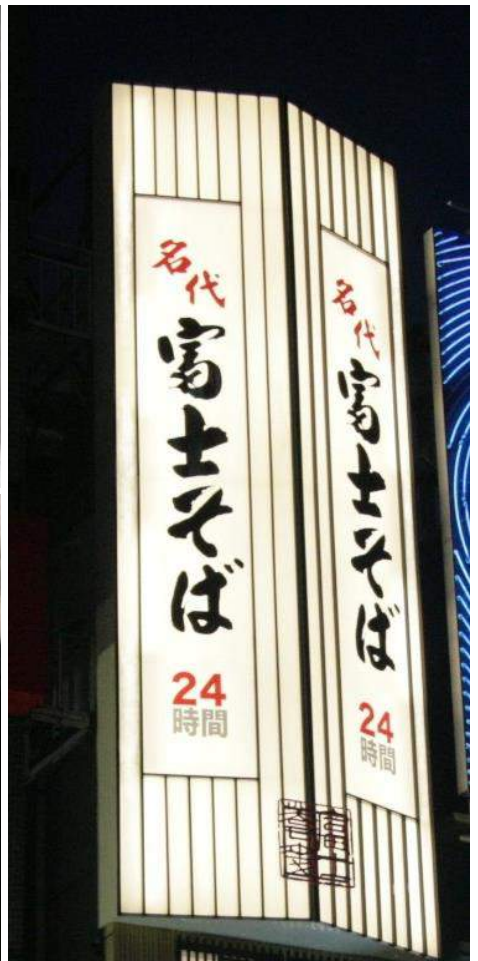 名代
富士そば
24
時間
名代
富士そば
24
時間